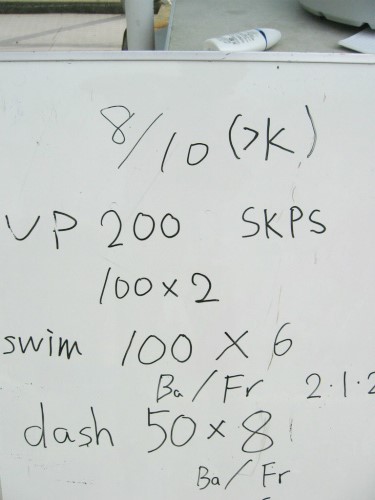 8/10 (水)
UP 200 SKPS
100×2
swim 100×6
Ba/Fr 2・1・2
dash 50×8
Ba/Fr